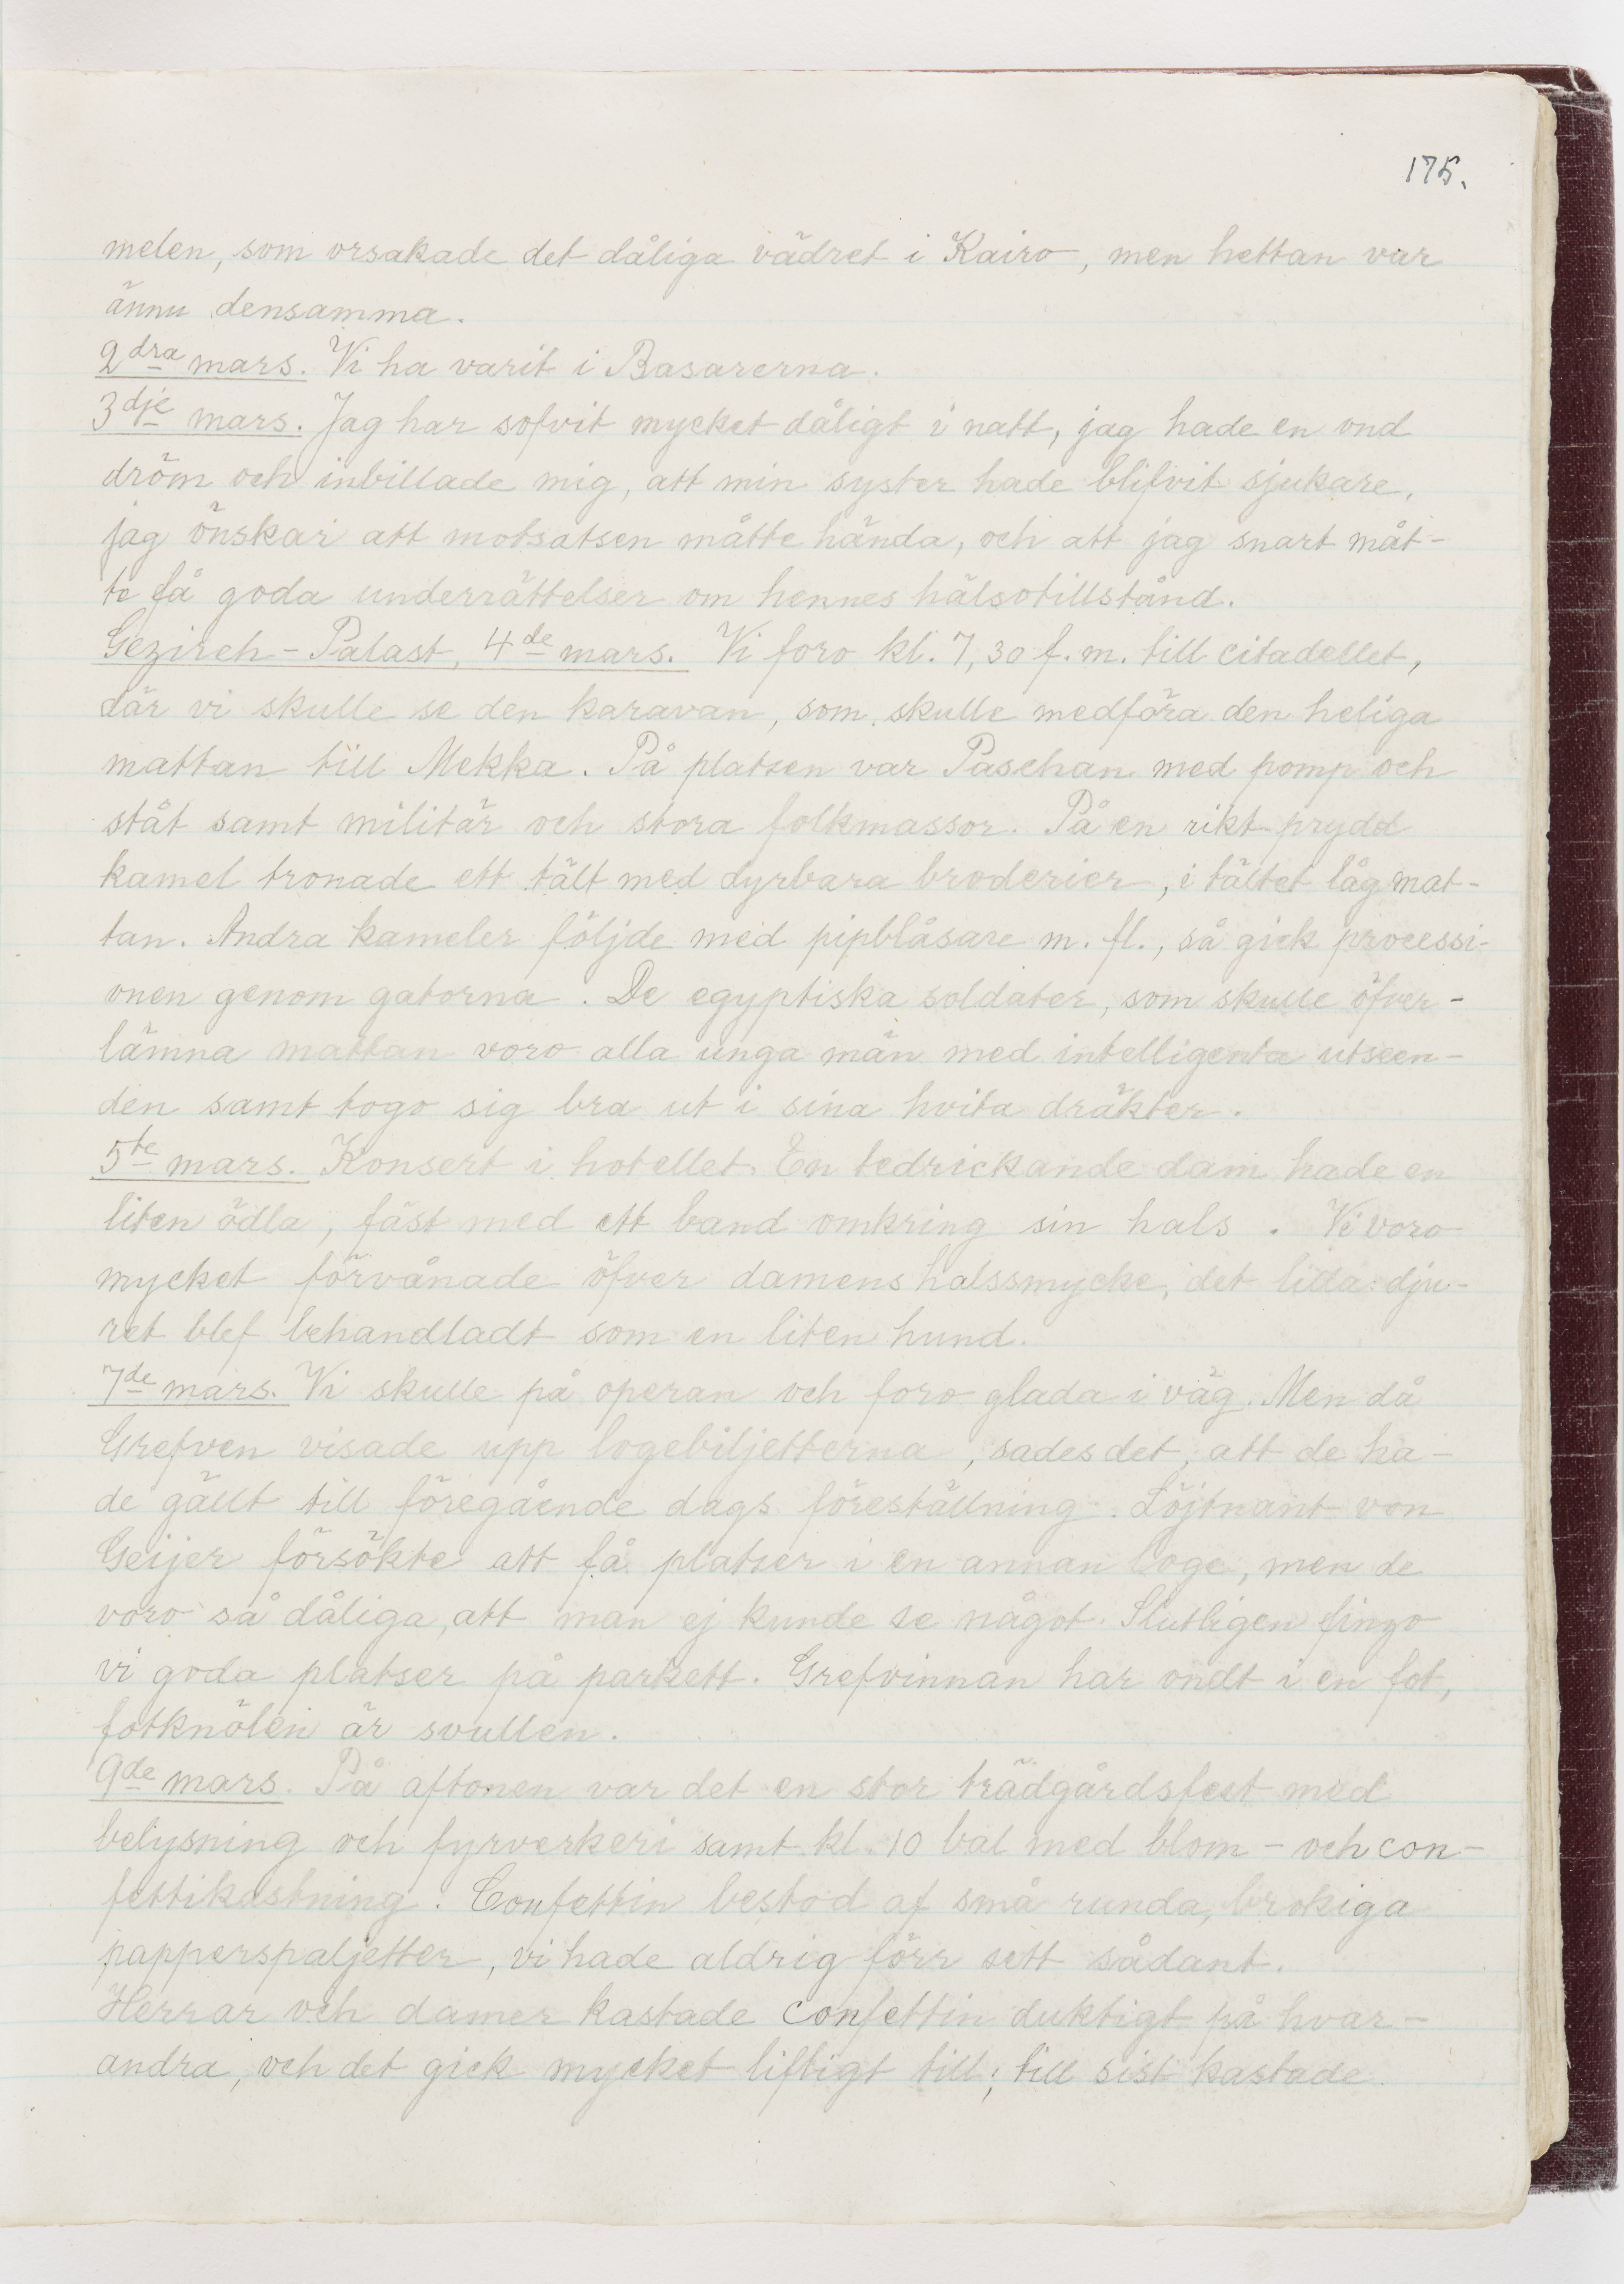 175.
melen, som orsakade det dåliga vädret i Kairo, men hettan var
ännu densamma.
2dra mars. Vi ha varit i Basarerna.
3dje mars. Jag har sofvit mycket dåligt i natt, jag hade en ond
dröm och inbillade mig, att min syster hade blifvit sjukare,
jag önskar att motsatsen måtte hända, och att jag snart måt-
te få goda underrättelser om hennes hälsotillstånd.
Gezireh-Palast, 4de mars. Vi foro kl. 7,30 f.m. till citadellet,
där vi skulle se den karavan, som skulle medföra den heliga
mattan till Mekka. På platsen var Paschan med pomp och
ståt samt militär och stora folkmassor. På en rikt prydd
kamel tronade ett tält med dyrbara broderier, i tältet låg mat-
tan. Andra kameler följde med pipblåsare m. fl., så gick processi-
onen genom gatorna. De egyptiska soldater, som skulle öfver-
lämna mattan voro alla unga män med intelligenta utseen-
den samt togo sig bra ut i sina hvita dräkter.
5te mars. Konsert i hotellet. En tedrickande dam hade en
liten ödla, fäst med ett band omkring sin hals. Vi voro
mycket förvånade öfver damens halssmycke, det lilla dju-
ret blef behandladt som en liten hund.
7de mars. Vi skulle på operan och foro glada i väg. Men då
Grefven visade upp logebiljetterna, sades det, att de ha-
de gällt till föregående dags föreställning. Löjtnant von
Geijer försökte att få platser i en annan loge, men de
voro så dåliga, att man ej kunde se något. Slutligen fingo
vi goda platser på parkett. Grefvinnan har ondt i en fot,
fotknölen är svullen.
9de mars. På aftonen var det en stor trädgårdsfest med
belysning och fyrverkeri samt kl. 10 bal med blom- och con-
fettikastning. Confettin bestod af små runda, brokiga
papperspaljetter, vi hade aldrig förr sett sådant.
Herrar och damer kastade confettin duktigt på hvar-
andra, och det gick mycket lifligt till; till sist kastade